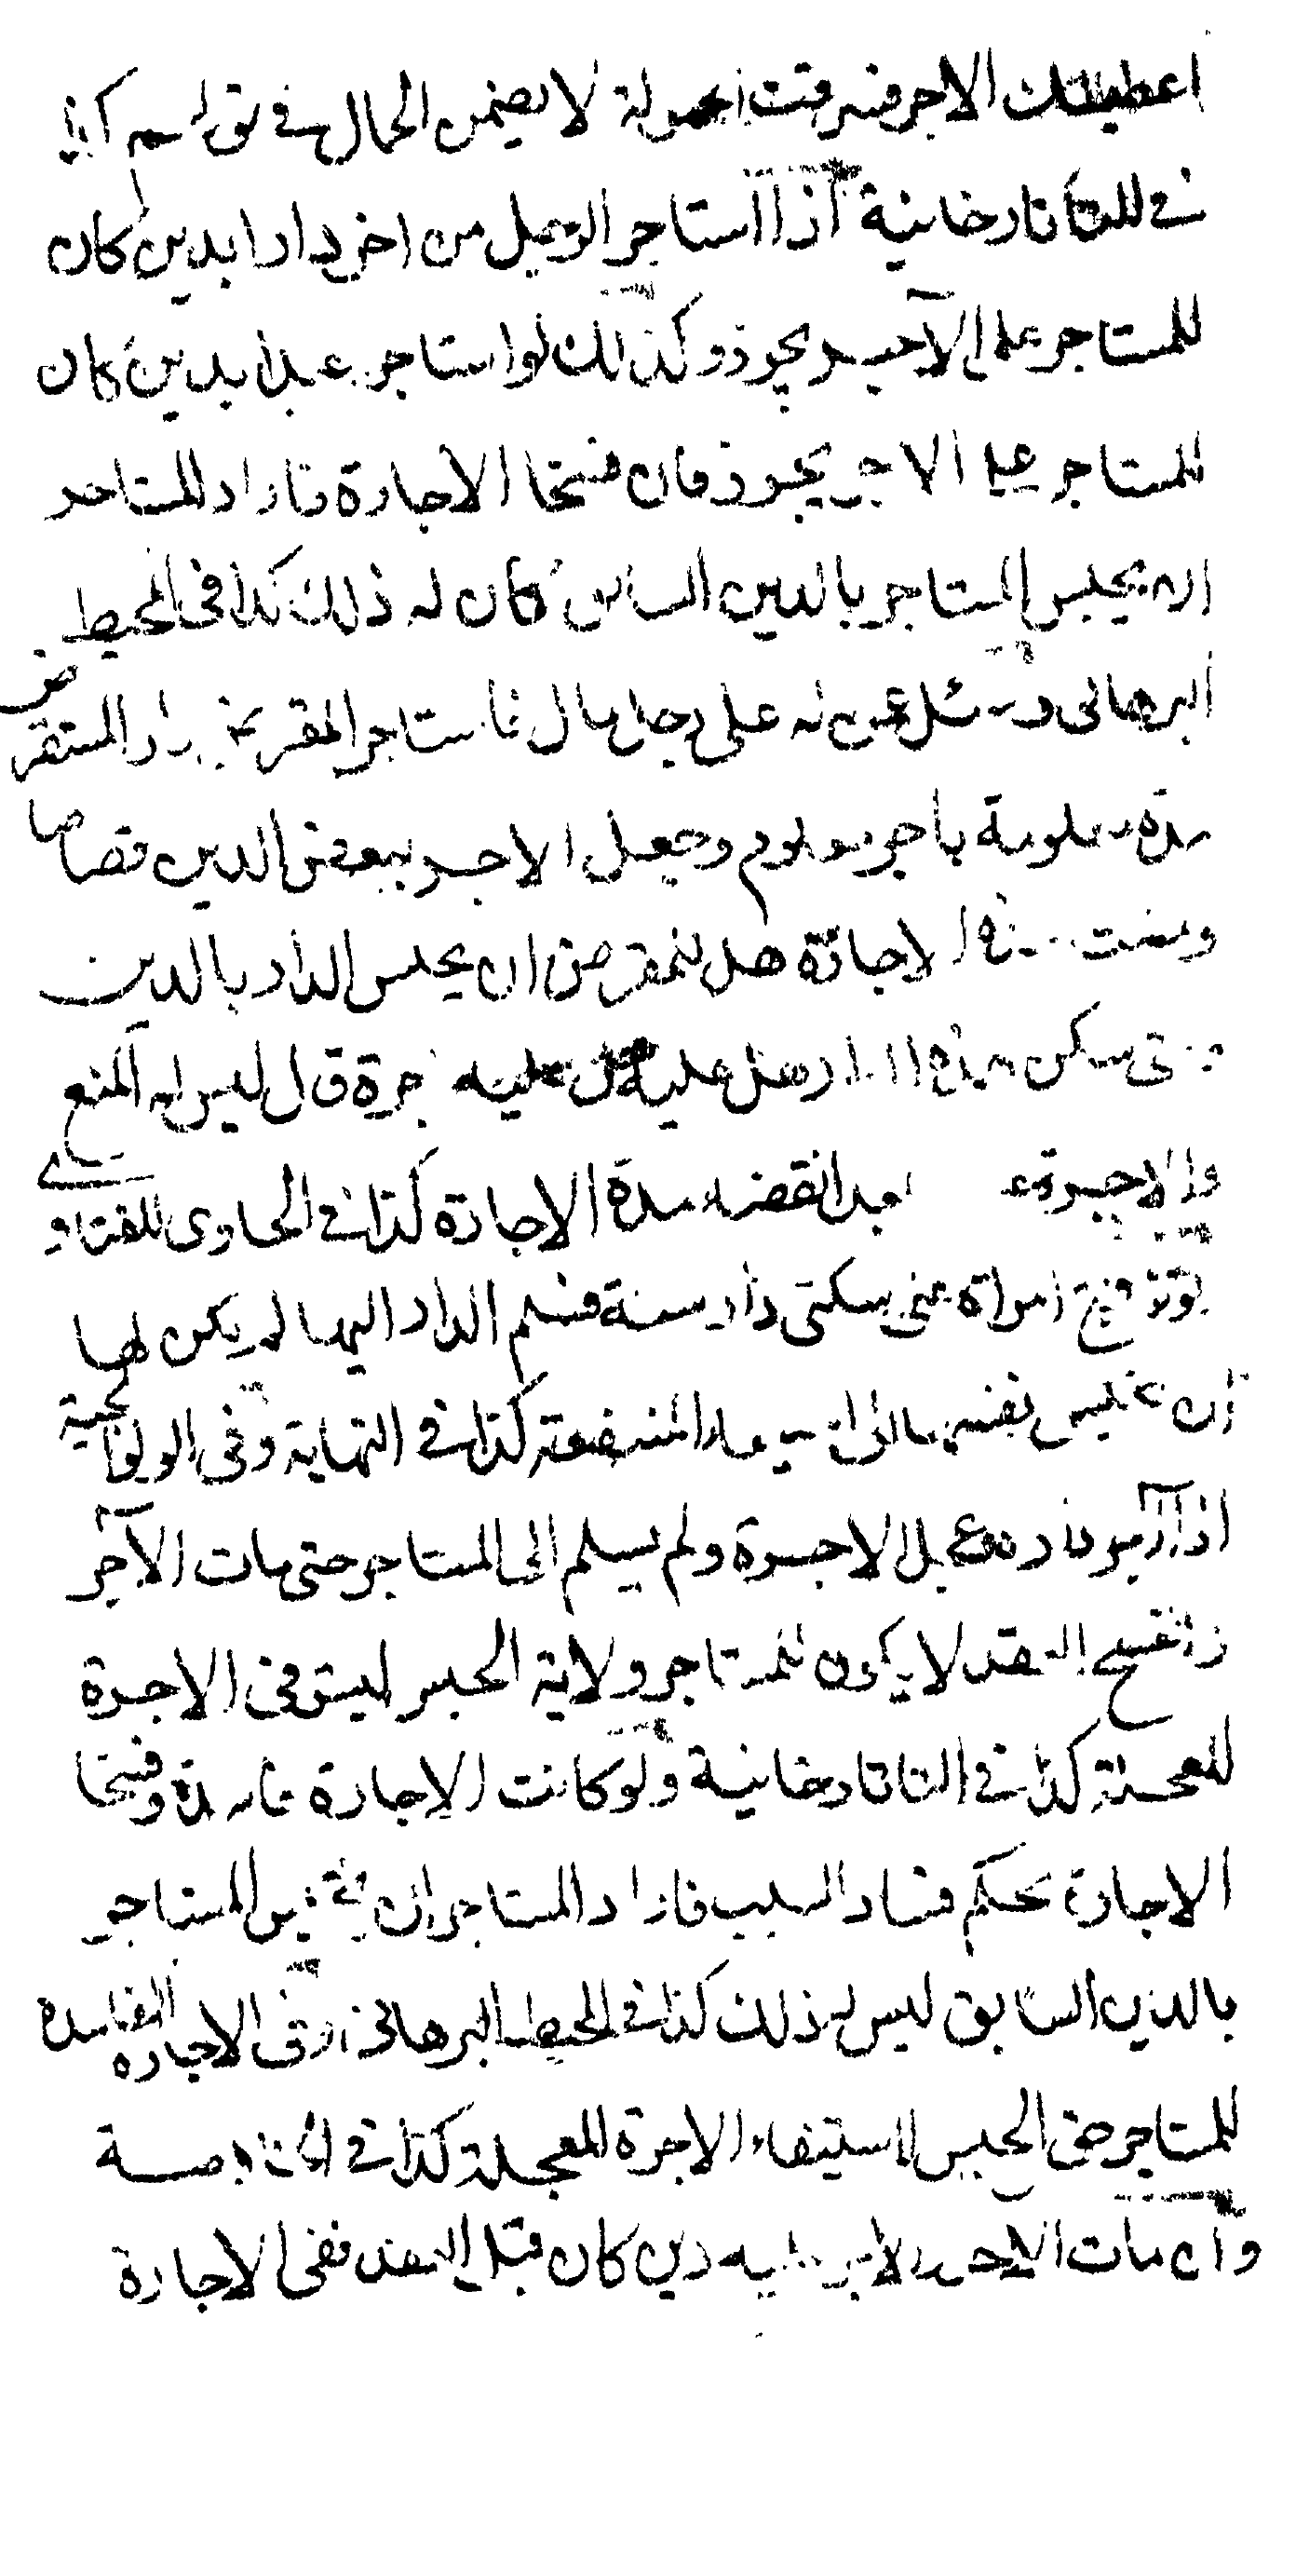 اعطيتك الاجر فسرقت الحمولة لا يضمن الحمال في قولهم كذا
في التاتارخانية اذا استاجر الرجل من اخر دارا بدين كان
للمستاجر على الآجر يجوز وكذلك لو استاجر عبدا بدين كان
للمستاجر على الاجر يجوز فان فسخا الاجارة فاراد المستاجر
ان يحبس المستاجر بالدين السابق كان له ذلك كذا في المحيط
البرهاني وسئل عمن له على رجل مال فاستاجر المقرض دار المستقرض
مدة معلومة باجر معلوم وجعل الاجر ببعض الدين قصاصا
ومضت مدة الاجارة هل للمقرض ان يحبس الدار بالدين
ومتى سكن هذه الدار هل عليه اجرة قال ليس له المنع
ولا اجرة بعد انقضاء مدة الاجارة كذا في الحاوي للفتاوى
لو تزوج امراة على سكنى دار سنة فسلم الدار اليها لم يكن لها
ان تحبس نفسها المنفعة كذا في النهاية وفي الولوالجية
اذا آجر داره وعجل الاجرة ولم يسلم الى المستاجر حتى مات الآجر
وانفسخ العقد لا يكون للمستاجر ولاية الحبس ليستوفي الاجرة
المعجلة كذا في التاتارخانية ولو كانت الاجارة فاسدة وفسخا
الاجارة بحكم فساد السبب فاراد المستاجر ان يحبس المستاجر
بالدين السابق ليس له ذلك كذا في المحيط البرهاني وفي الاجارة الفاسدة
للمستاجر حق الحبس لاستيفاء الاجرة المعجلة كذا في الخلاصة
وان مات الاجر عليه دين كان قبل العقد ففي الاجارة